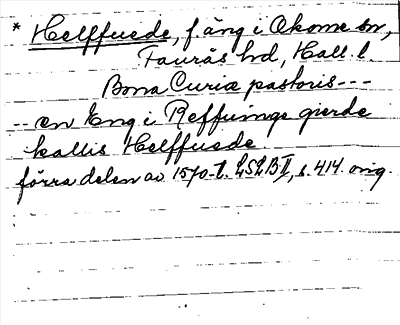 * Helffuede, f. äng i Okome sn,
Faurås hd, Hall. l.
Bona Curiæ pastoris ---
-- en Eng i Reffuinge gierde
kallis Helffuede
förra delen av 1570-t. LSLB II, s. 414 orig.